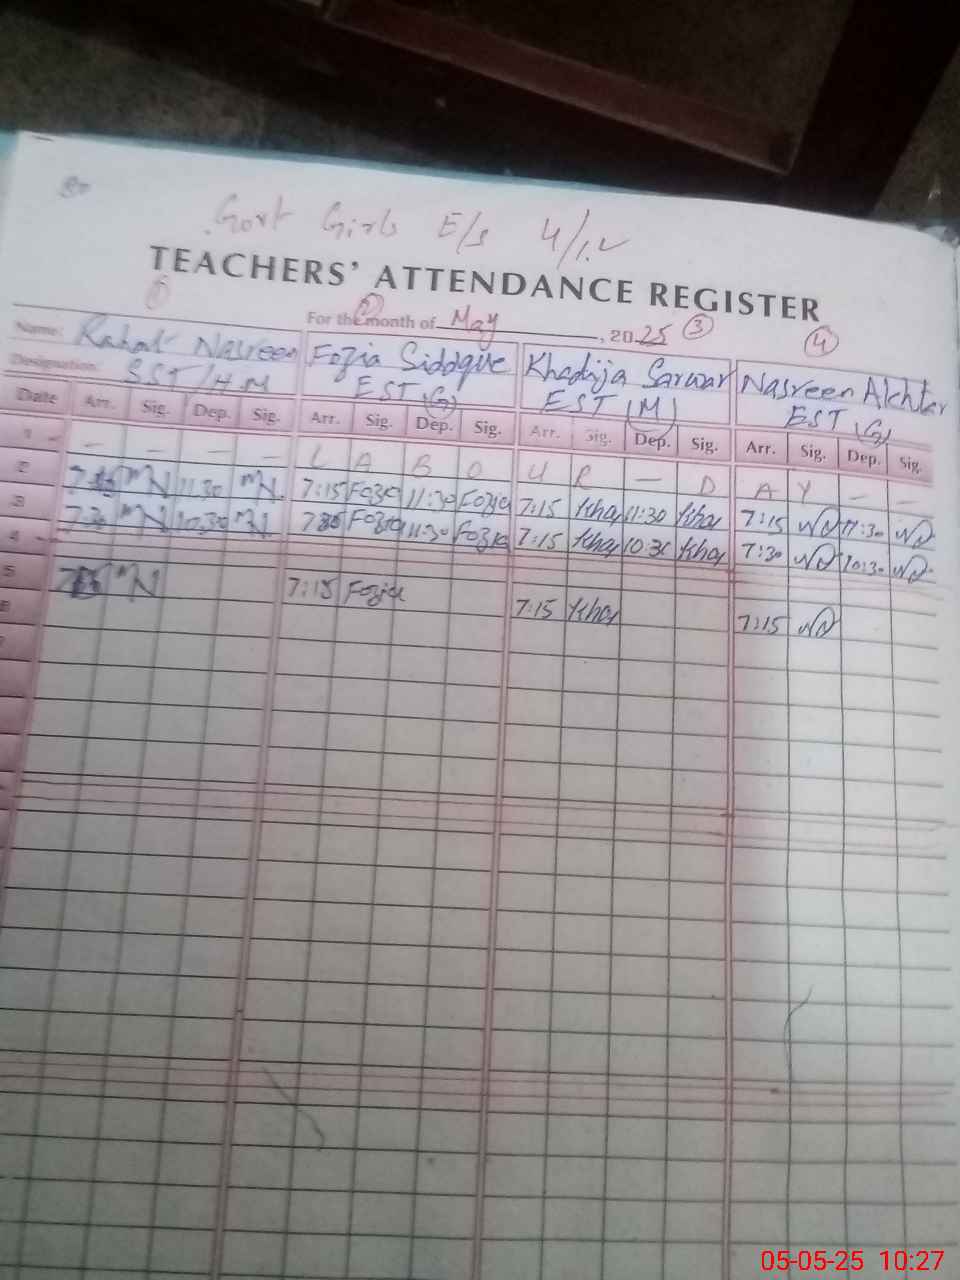 Govt Girls E/s 4/1.L
TEACHERS' ATTENDANCE REGISTER
① ② ③ ④
For the month of May, 2025
Name: Rahat Nasreen Fozia Siddque Khadija Sarwar Nasreen Akhtar
Designation: SST/H.M EST (G) EST (M) EST (G)
Date Arr. Sig. Dep. Sig. Arr. Sig. Dep. Sig. Arr. Sig. Dep. Sig. Arr. Sig. Dep. Sig.
1 — — — — L A B O U R — D A Y — —
2 11:30 7:15 Fozia 11:30 Fozia 7:15 Khaj 11:30 Khaj 7:15 11:30
3 7:30 10:30 Fozia 11:30 Fozia 7:15 Khaj 10:30 Khaj 7:30 10:30
4
5 7:15 Fozia 7:15 Khaj 7:15
6
7
05-05-25 10:27